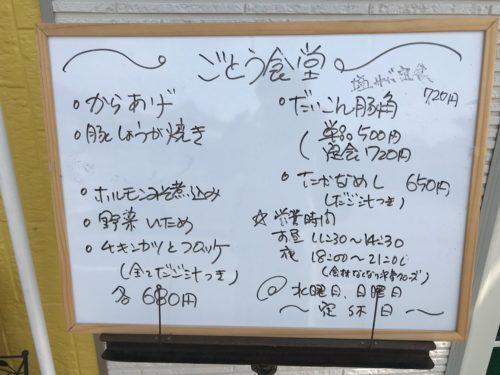 ごとう食堂
・からあげ
・豚しょうが焼き
・ホルモンみそ煮込み
・野菜いため
・チキンカツとコロッケ
(全てだご汁つき)
各 680円
720円
・だいこん豚角
単品 500円
定食 720円
・たかなめし 650円
(だご汁つき)
☆営業時間
お昼 11:30〜14:30
夜 18:00〜21:00
水曜日、日曜日
〜定休日〜